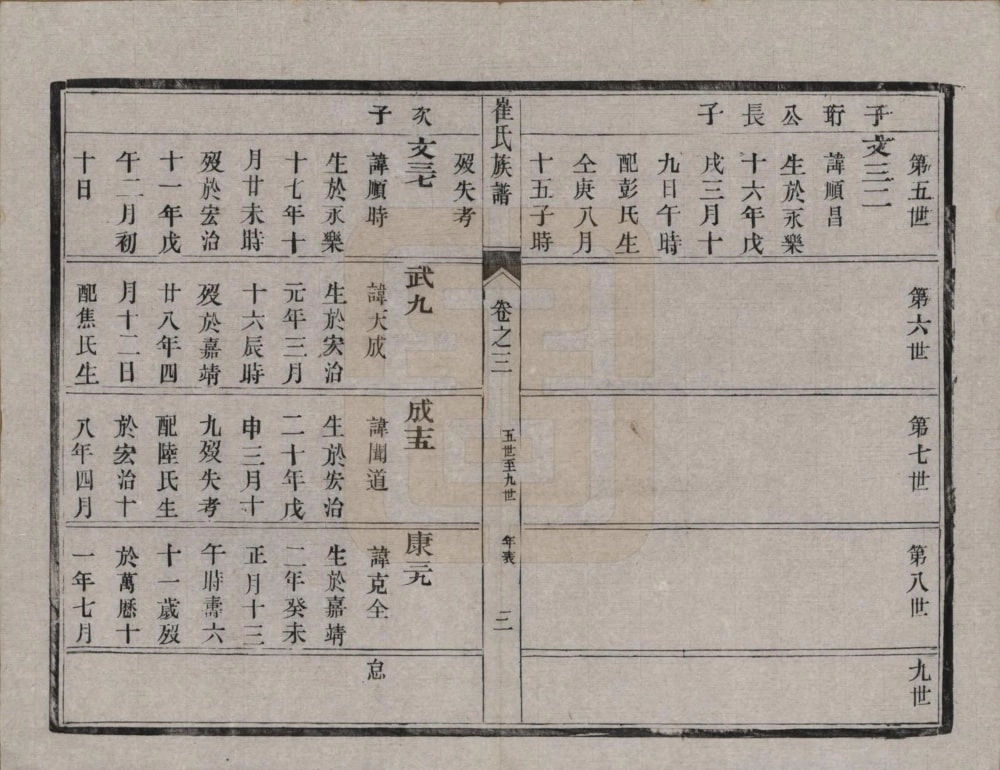 第五世
第六世
第七世
第八世
九世
子 文三二
珩 諱順昌
公 生於永樂
長 十六年戊
子 戌三月十
九日午時
配彭氏生
仝庚八月
十五子時
崔氏族譜
卷之三
五世至九世
年表
二
歿失考
次 文三七
子 諱順時
生於永樂
十七年十
月廿未時
歿於宏治
十一年戊
午二月初
十日
武九
諱天成
生於宏治
元年三月
十六辰時
歿於嘉靖
廿八年四
月十二日
配焦氏生
成十五
諱聞道
生於宏治
二十年戊
申三月十
九歿失考
配陸氏生
於宏治十
八年四月
康元
諱克全
生於嘉靖
二年癸未
正月十三
午時壽六
十一歲歿
於萬曆十
一年七月
怠